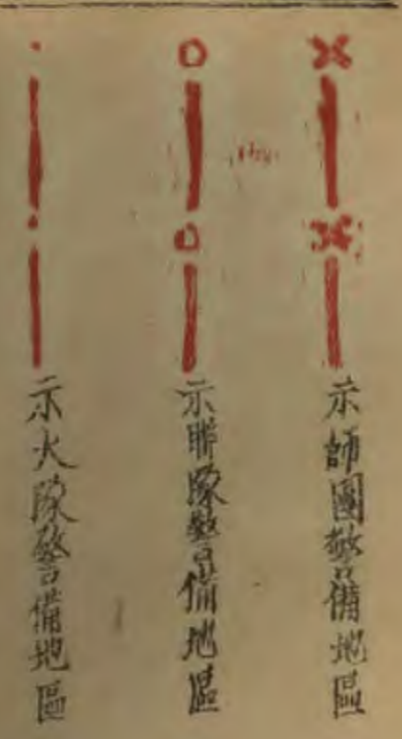 示師團警備地區
示聯隊警備地區
示大隊警備地區